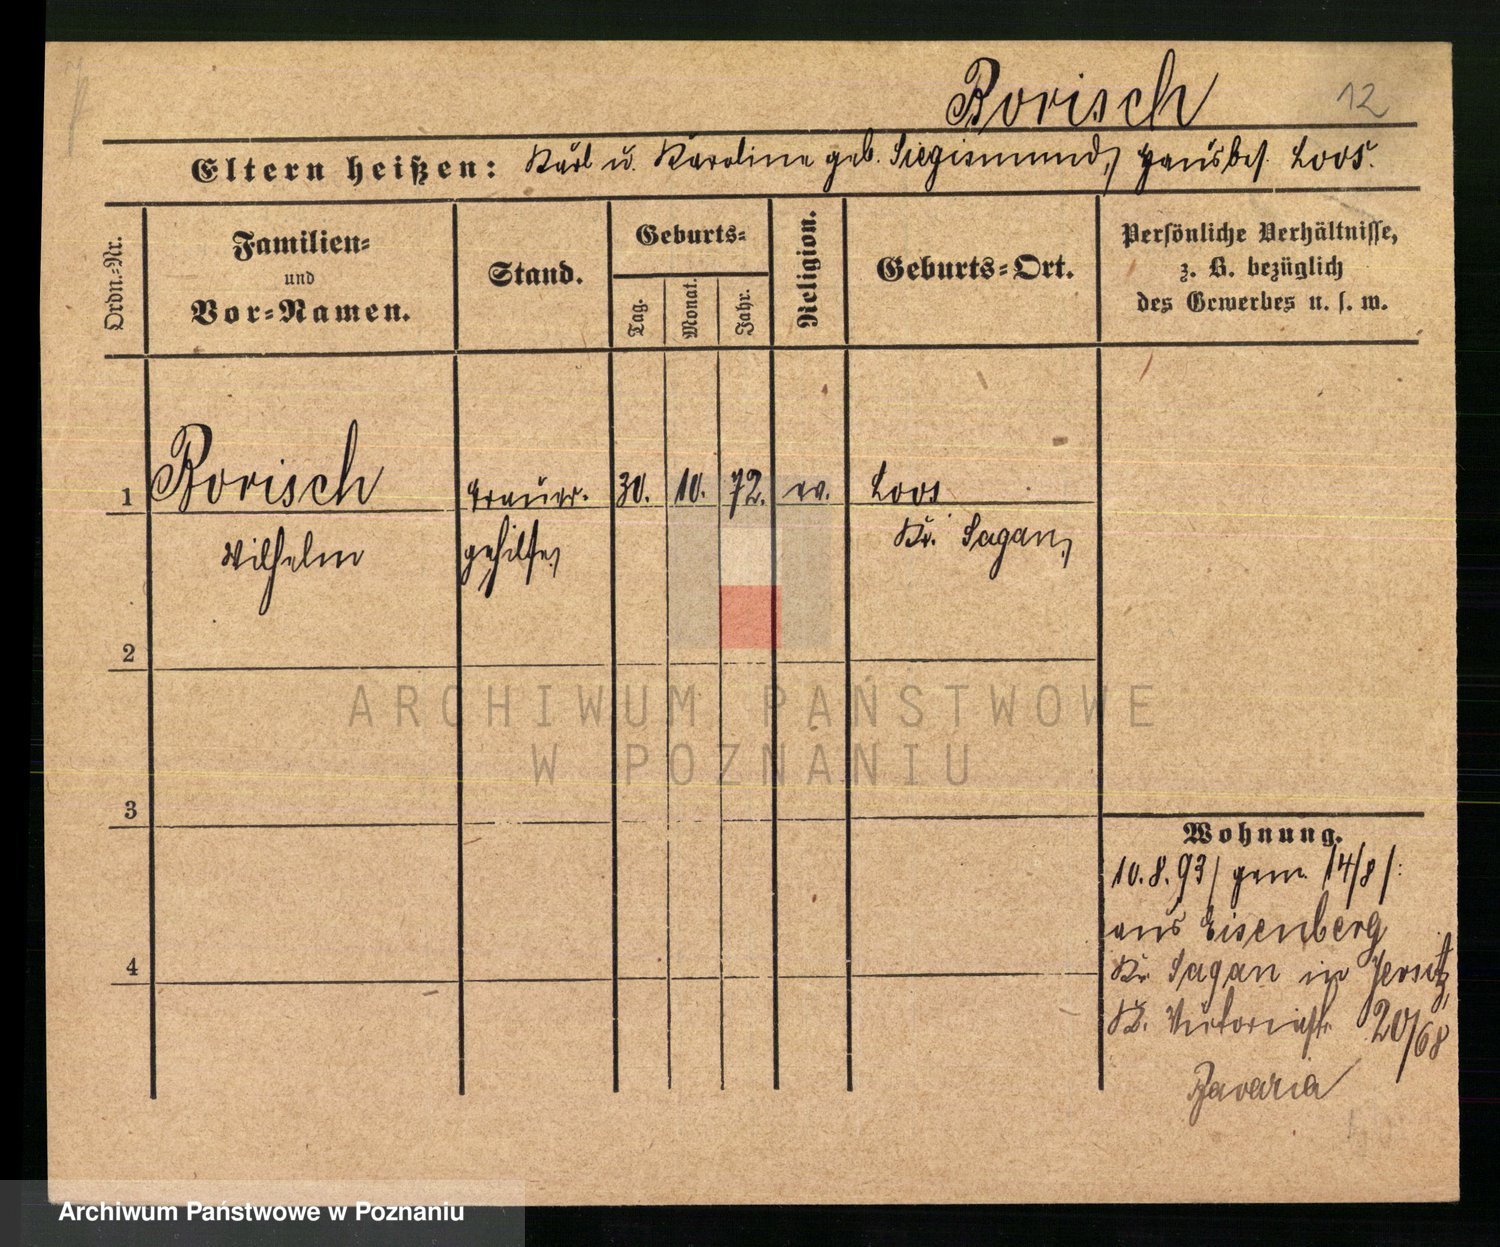 Borisch 12
Eltern heißen: Karl u. Karoline geb. Siegismund, Hausbes. Loos.
Ordn.-Nr.
Familien-
und
Vor-Namen.
Stand.
Geburts-
Tag.
Monat.
Jahr.
Religion.
Geburts-Ort.
Persönliche Verhältnisse,
z. B. bezüglich
des Gewerbes u. s. w.
1 Borisch Brauer- 30. 10. 72. ev. Loos
Wilhelm gehilfe, Kr. Sagan,
2
ARCHIWUM PAŃSTWOWE
W POZNANIU
3
4
Wohnung.
10.8.93 / gem. 14/8 /:
aus Eisenberg
Kr Sagan in Jersitz,
Kr. Victoriastr. 20/68
Bavaria
Archiwum Państwowe w Poznaniu